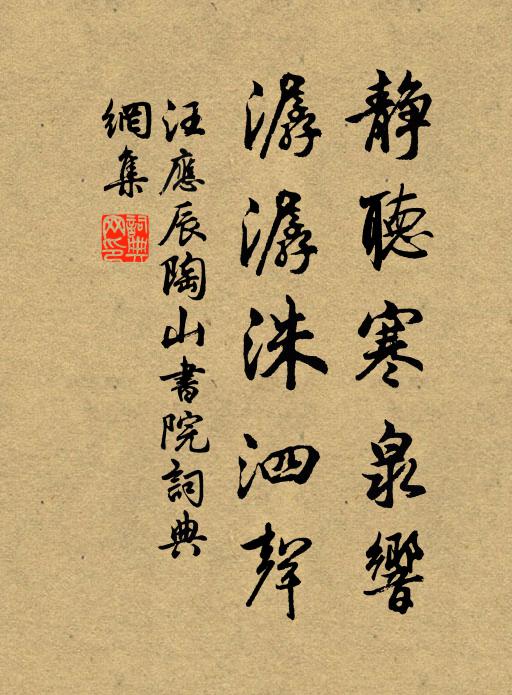 静聽寒泉響
潺潺洙泗聲
汪應辰陶山書院詞典
網集
詞典網印